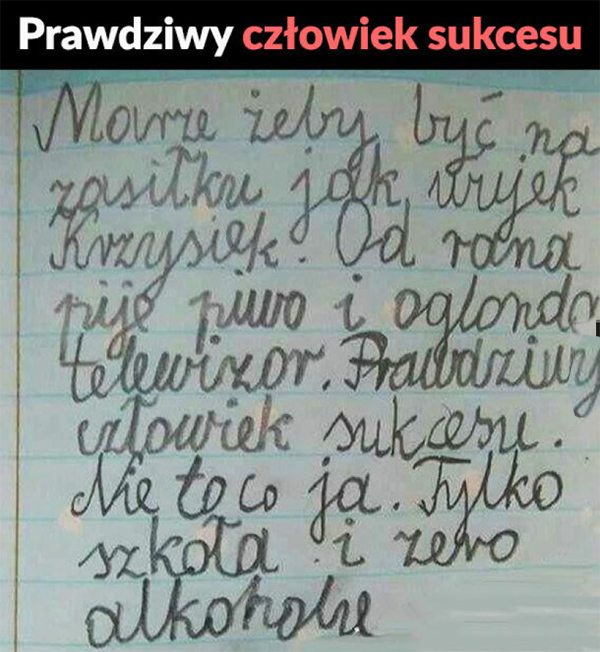 Prawdziwy człowiek sukcesu
Marze żeby być na
zasiłku jak wujek
Krzysiek. Od rana
pije piwo i oglonda
telewizor. Prawdziwy
człowiek sukcesu.
Nie to co ja. Tylko
szkoła i zero
alkoholu